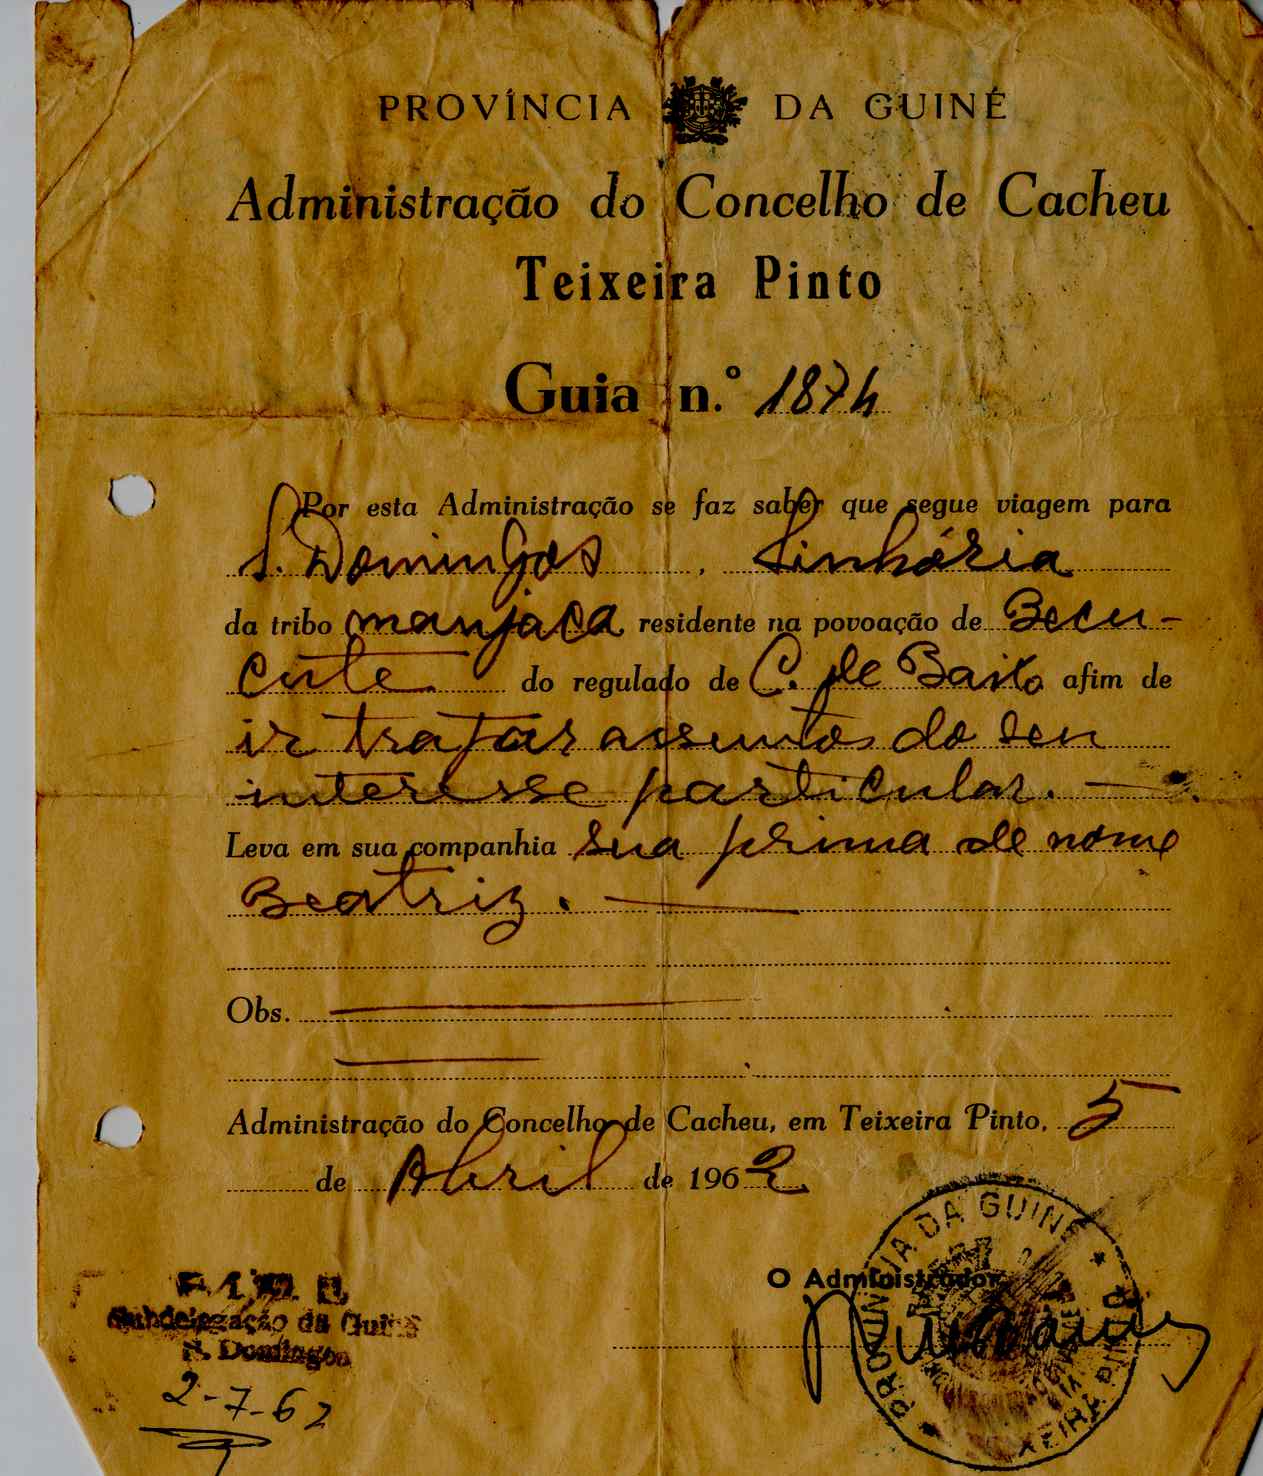 PROVÍNCIA DA GUINÉ
Administração do Concelho de Cacheu
Teixeira Pinto
Guia n.º 1874
Por esta Administração se faz saber que segue viagem para
S. Domingos, Linhária
da tribo manjaca, residente na povoação de Becu-
cute do regulado de C. de Baixo afim de
ir tratar assuntos do seu
interesse particular.
Leva em sua companhia sua prima de nome
Beatriz.
Obs.
Administração do Concelho de Cacheu, em Teixeira Pinto, 5
de Abril de 1962
PROVINCIA DA GUINÉ
O Administrador
P. I. D. E.
Subdelegação da Guiné
S. Domingos
2-7-62